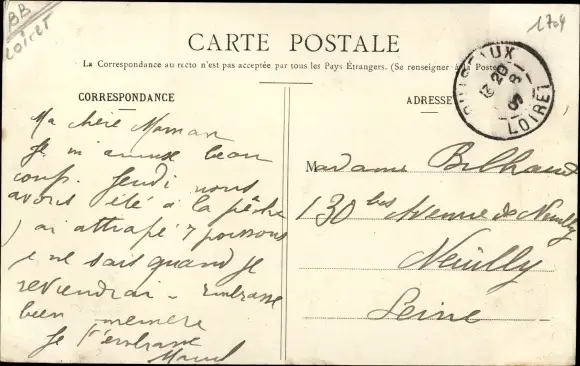 BB
Loiret
1704
CARTE POSTALE
La Correspondance au recto n'est pas acceptée par tous les Pays Étrangers. (Se renseigner à la Poste
CORRESPONDANCE
ADRESSE
PUISEAUX
26
LOIRET
Ma chère Maman
Je m'amuse beau
coup. Jeudi nous
avons été à la pêche
j ai attrapé 7 poissons
je ne sais quand je
reviendrai - Embrasse
bien memere
Je t'embrasse
Marcel
Madame Bilhaud
130 bis Avenue de Neuilly
Neuilly
Seine